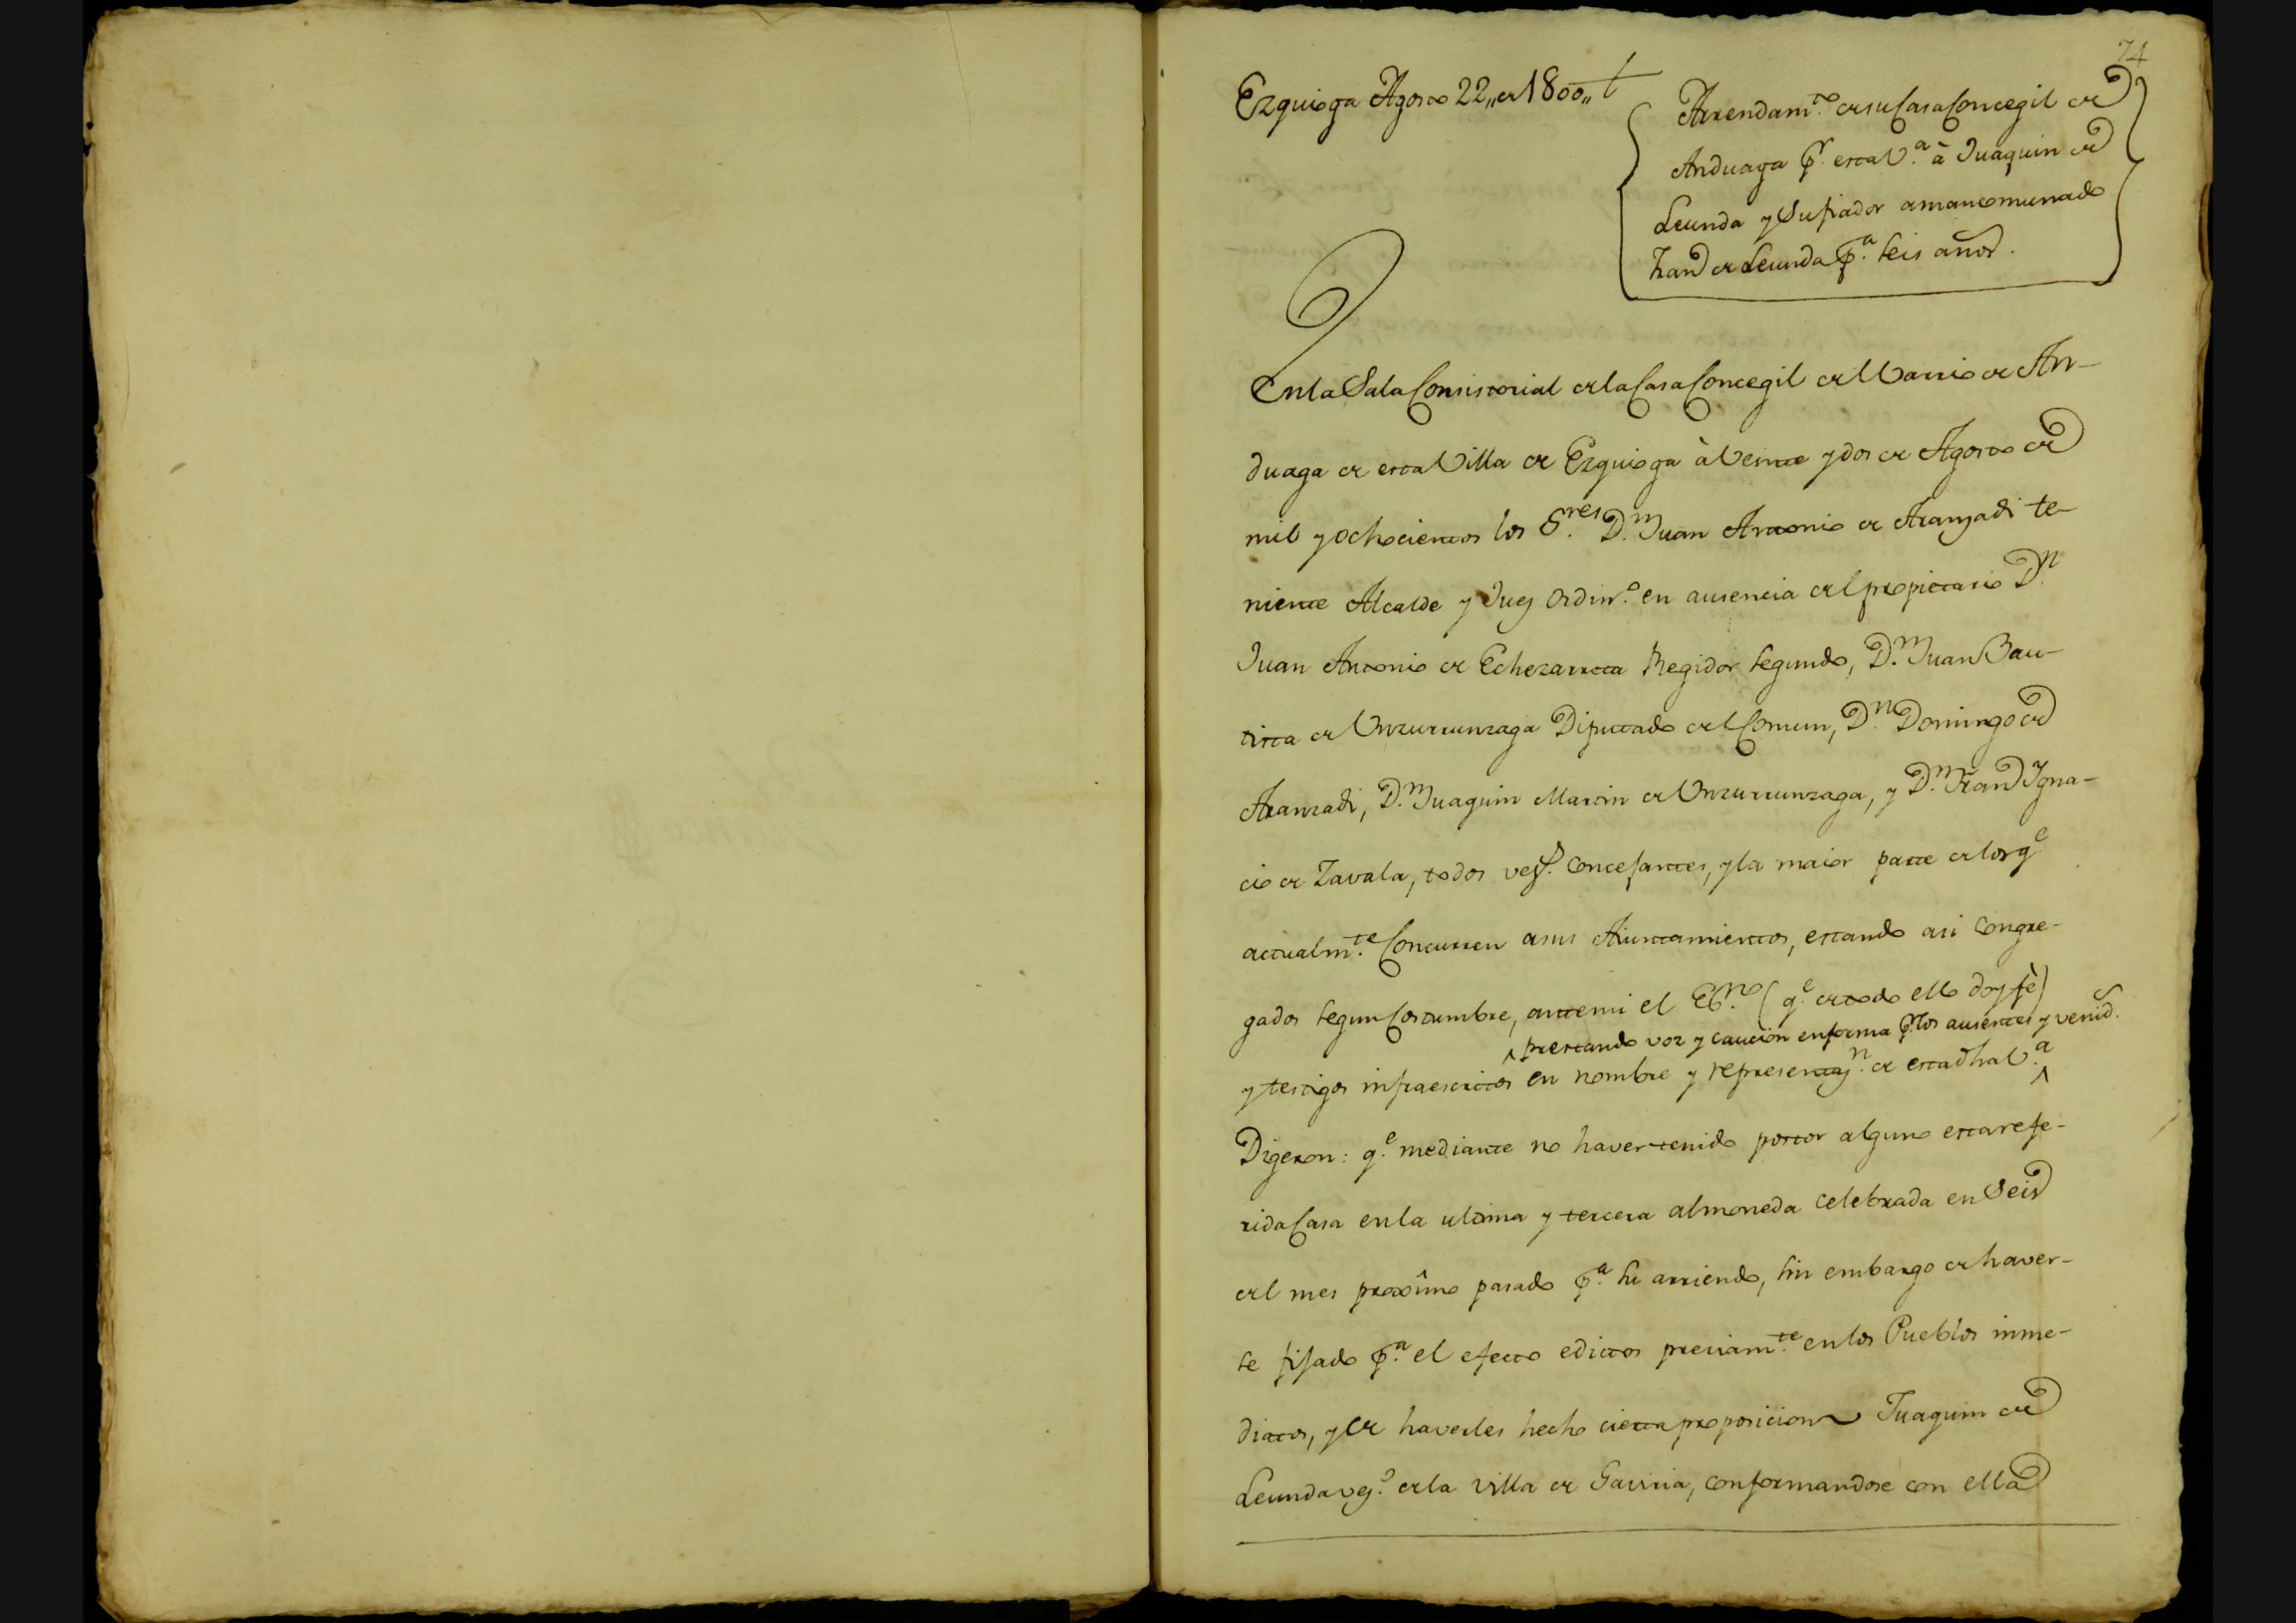 74
Ezquioga Agosto 22,, de 1800,,
Arrendam.to de su Casa Concegil de
Anduaga pr. esta V.a à Juaquin de
Leunda y Su fiador amancomunado
Fran.co de Leunda p.a seis años.
En la Sala Consistorial de la Casa Concegil del Varrio de An-
duaga de esta Villa de Ezquioga à Veinte y dos de Agosto de
mil y ochocientos los S.res D.n Juan Antonio de Aranzadi te-
niente Alcalde y Juez Ordin.o en ausencia del propietario D.n
Juan Antonio de Echezarreta Regidor segundo, D.n Juan Bau-
tista de Unzurrunzaga Diputado del Comun, D.n Domingo de
Aranzadi, D.n Juaquin Martin de Unzurrunzaga, y D.n Fran.co Igna-
cio de Zavala, todos vez.s Concejantes, y la maior parte de los q.e
actualm.te Concurren a sus Aiuntamientos, estando asi Congre-
gados segun Costumbre, ante mi el Es.no (q.e de todo ello doy fè)
prestando voz y caución en forma pr. los ausentes y venid.s
y testigos infraescritos en nombre y representaz.n de esta dha V.a
Digeron: q.e mediante no haver tenido postor alguno esta refe-
rida Casa en la ultima y tercera almoneda celebrada en Seis
del mes proxîmo pasado p.a su arriendo, sin embargo de haver-
se fijado p.a el efecto edictos previam.te en los Pueblos inme-
diatos, y de haverles hecho cierta proposicion Juaquin de
Leunda vez.o de la Villa de Gaviria, conformandose con ella